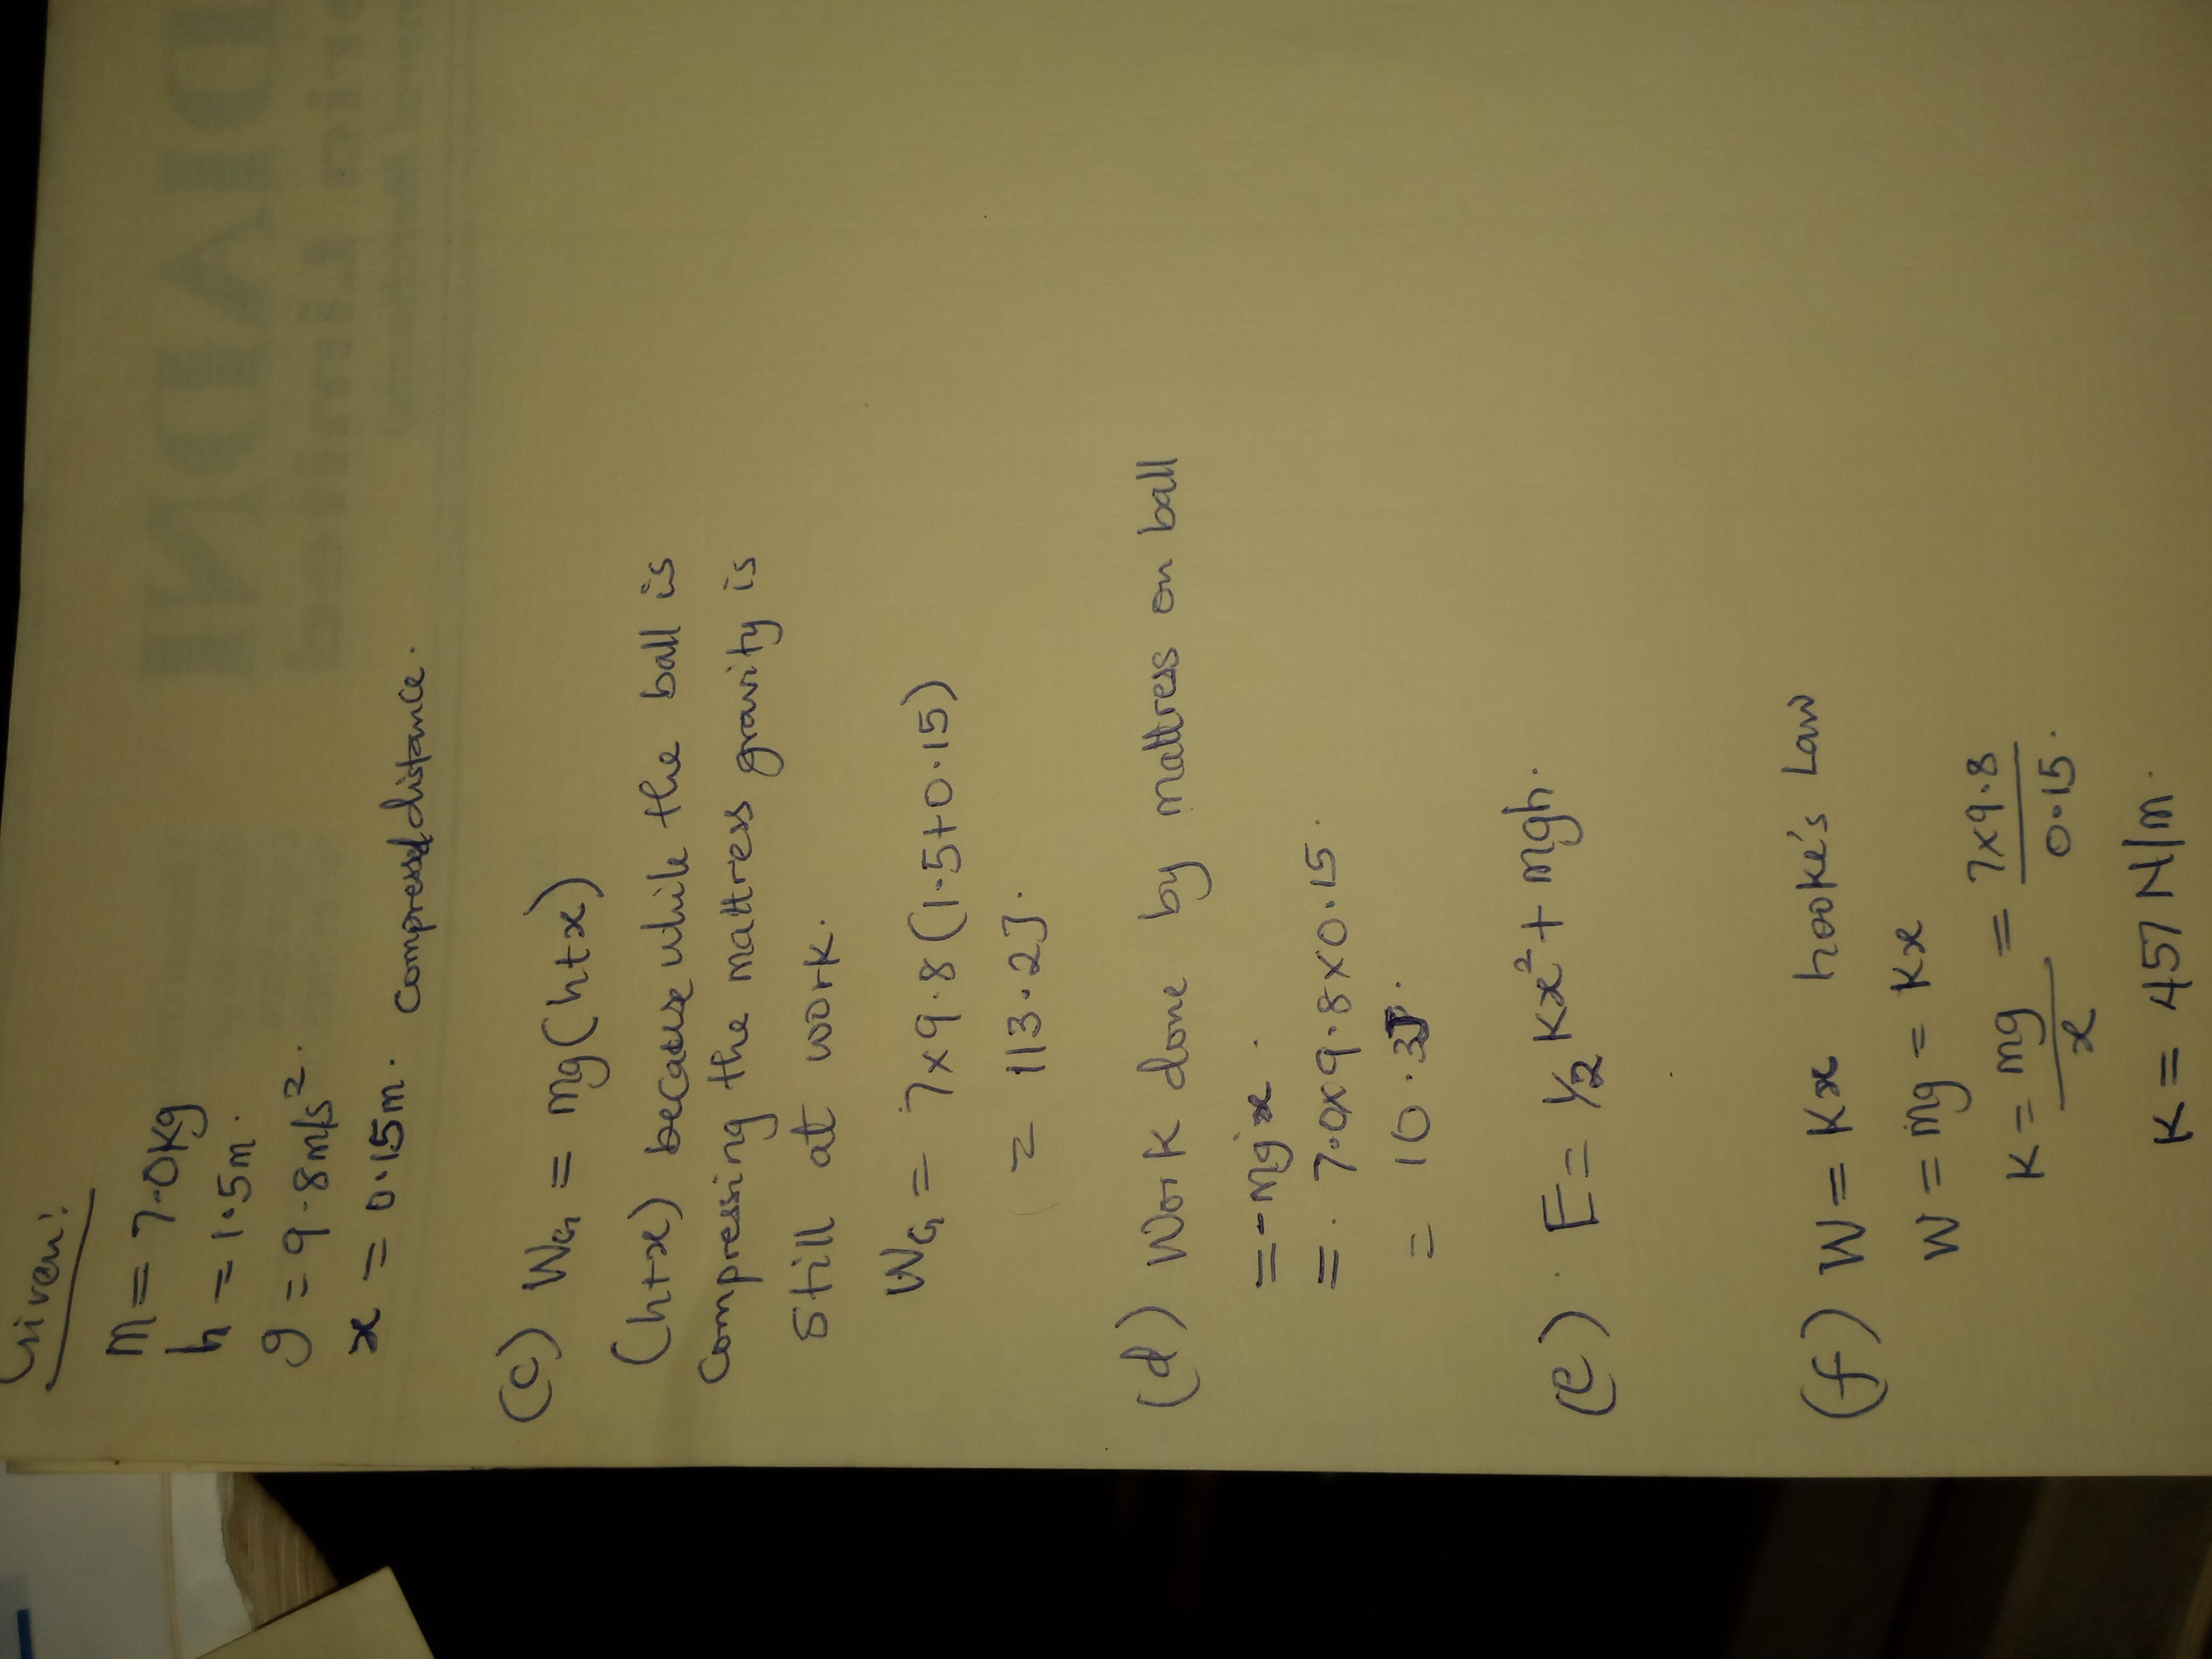 Given:
m = 7.0kg
h = 1.5m.
g = 9.8m/s².
x = 0.15m. compressed distance.
(c) WG = mg(h+x)
(h+x) because while the ball is
compressing the mattress gravity is
still at work.
WG = 7x9.8(1.5+0.15)
= 113.2J.
(d) Work done by mattress on ball
=-mgx.
=. 7.0x9.8x0.15.
= 10.3J.
(e). E= 1/2 Kx²+mgh.
(f) W=Kx hooke's Law
W=mg=Kx
K=mg/x = 7x9.8/0.15.
K=457N/m.